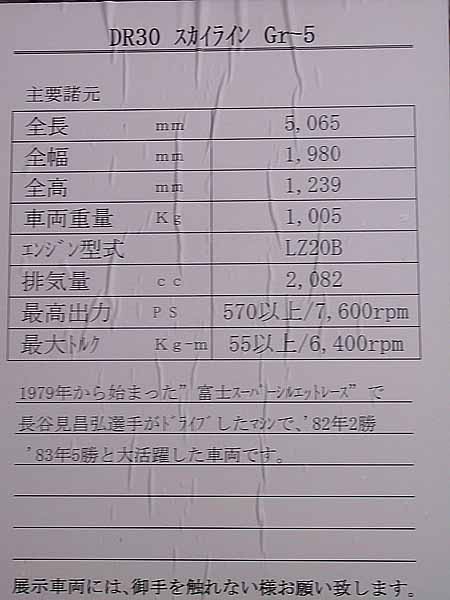 DR30 ｽｶｲﾗｲﾝ Gr-5
主要諸元
全長 mm 5,065
全幅 mm 1,980
全高 mm 1,239
車両重量 Kg 1,005
ｴﾝｼﾞﾝ型式 LZ20B
排気量 cc 2,082
最高出力 PS 570以上/7,600rpm
最大ﾄﾙｸ Kg-m 55以上/6,400rpm
1979年から始まった”富士ｽｰﾊﾟｰｼﾙｴｯﾄﾚｰｽ”で
長谷見昌弘選手がﾄﾞﾗｲﾌﾞしたﾏｼﾝで、'82年2勝
'83年5勝と大活躍した車両です。
展示車両には、御手を触れない様お願い致します。